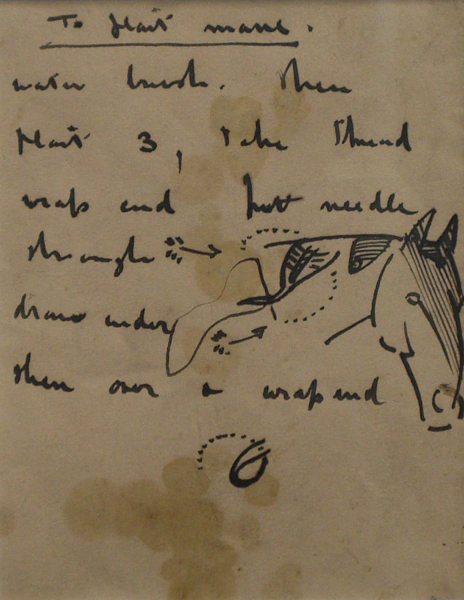 To plait mane.
water brush. Then
plait 3, take thread
wrap end put needle
through
draw under
then over & wrap end